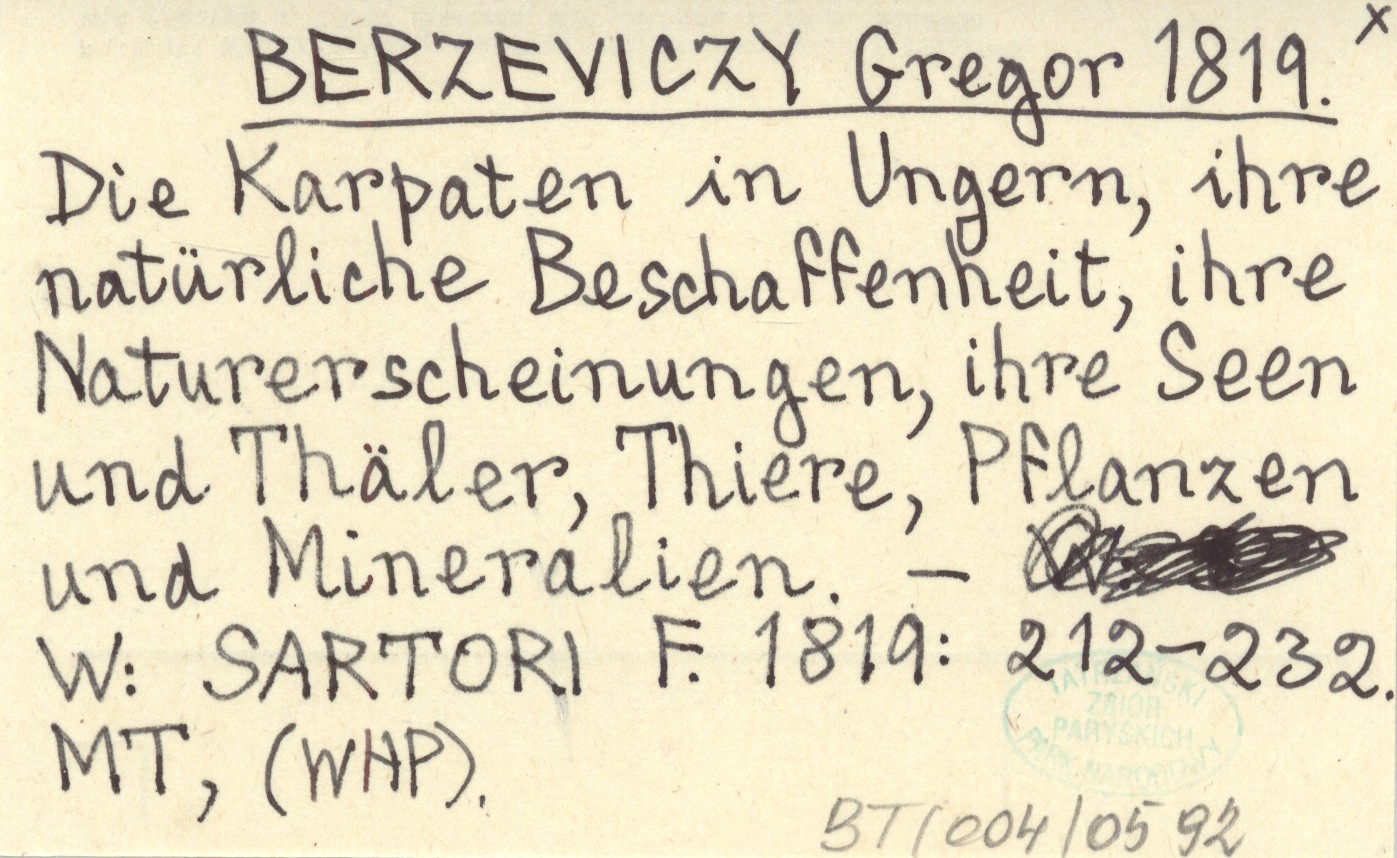 BERZEVICZY Gregor 1819. x
Die Karpaten in Ungern, ihre
natürliche Beschaffenheit, ihre
Naturerscheinungen, ihre Seen
und Thäler, Thiere, Pflanzen
und Mineralien. —
W: SARTORI F. 1819: 212-232.
MT, (WHP).
TATRZAŃSKI
ZBIÓR
PARYSKICH
PARK NARODOWY
BT/004/0592